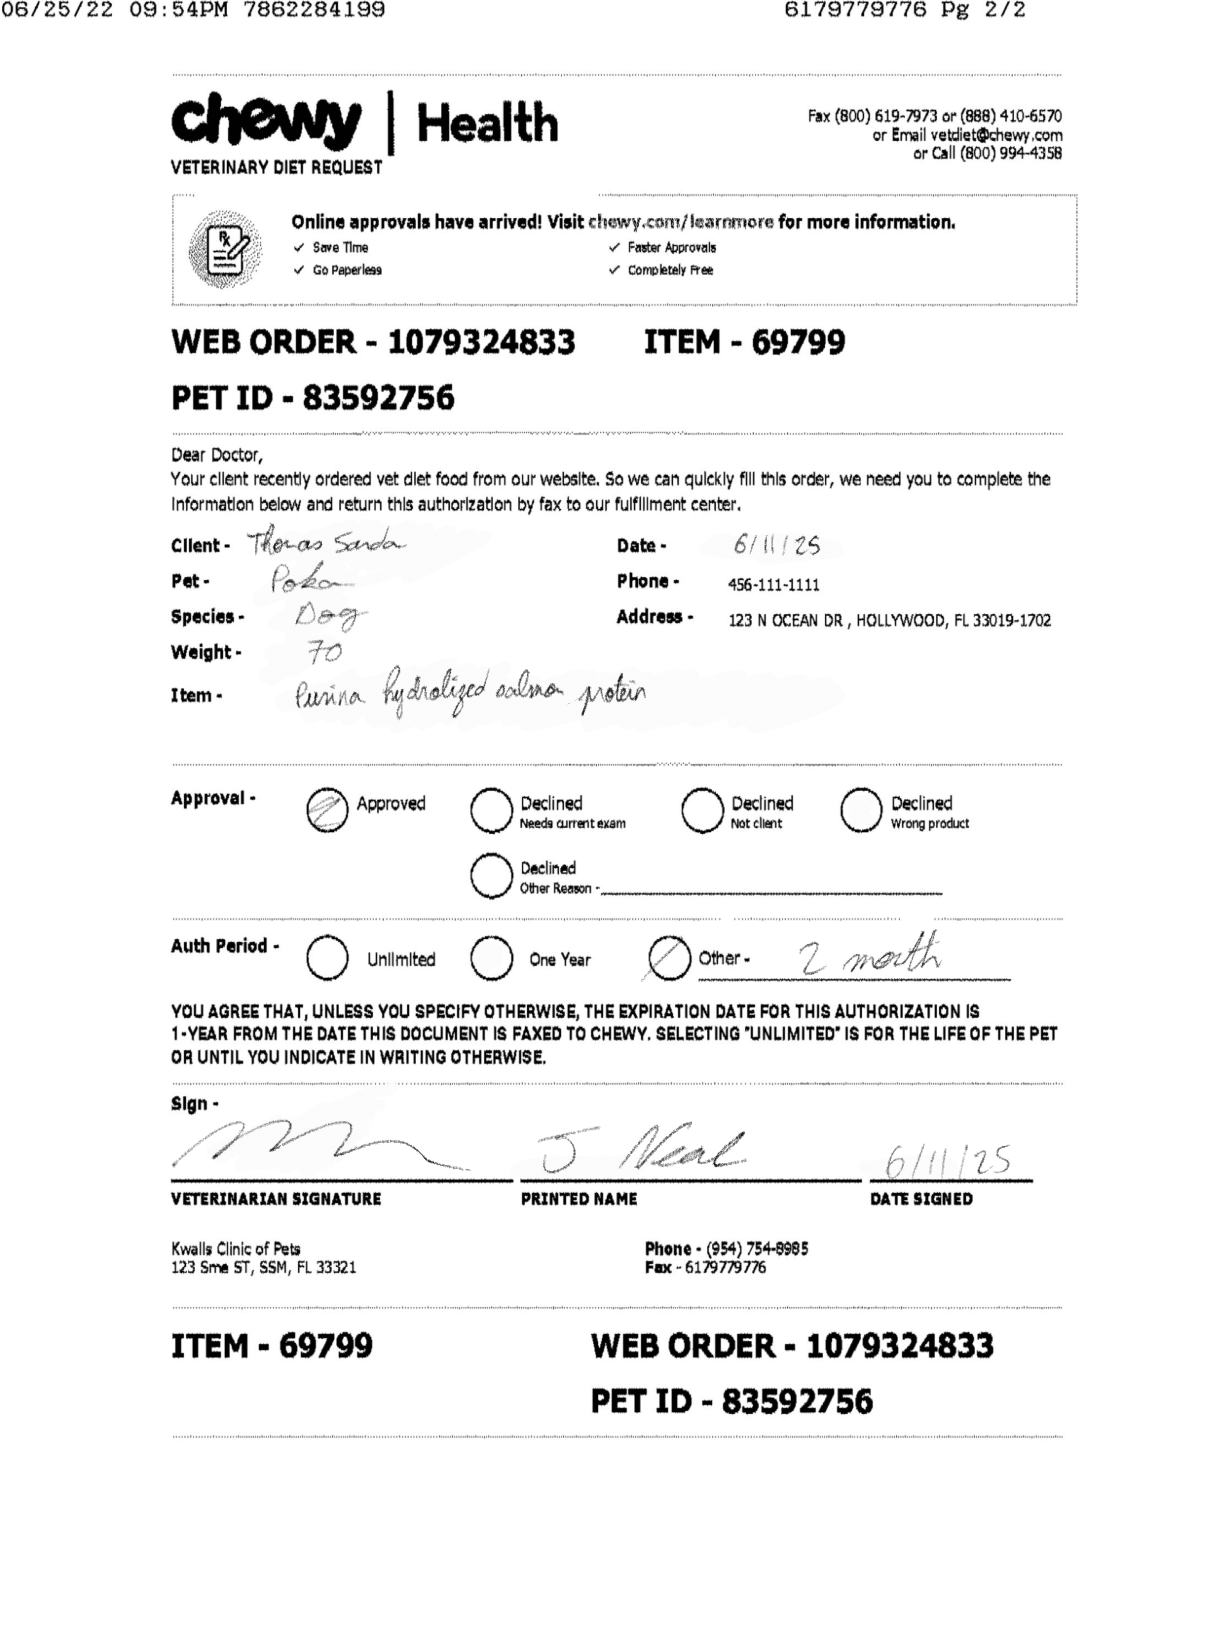 06/25/22 09:54PM 7862284199 6179779776 Pg 2/2
chewy | Health
Fax (800) 619-7973 or (888) 410-6570
or Email vetdiet@chewy.com
or Call (800) 994-4358
VETERINARY DIET REQUEST
Rx
Online approvals have arrived! Visit chewy.com/learnmore for more information.
✓ Save Time ✓ Faster Approvals
✓ Go Paperless ✓ Completely Free
WEB ORDER - 1079324833 ITEM - 69799
PET ID - 83592756
Dear Doctor,
Your client recently ordered vet diet food from our website. So we can quickly fill this order, we need you to complete the
information below and return this authorization by fax to our fulfillment center.
Client - Thomas Sanda Date - 6/11/25
Pet - Poka Phone - 456-111-1111
Species - Dog Address - 123 N OCEAN DR , HOLLYWOOD, FL 33019-1702
Weight - 70
Item - Purina hydrolized salmon protein
Approval - Approved Declined Needs current exam Declined Not client Declined Wrong product
Declined
Other Reason -
Auth Period - Unlimited One Year Other - 2 month
YOU AGREE THAT, UNLESS YOU SPECIFY OTHERWISE, THE EXPIRATION DATE FOR THIS AUTHORIZATION IS
1-YEAR FROM THE DATE THIS DOCUMENT IS FAXED TO CHEWY. SELECTING "UNLIMITED" IS FOR THE LIFE OF THE PET
OR UNTIL YOU INDICATE IN WRITING OTHERWISE.
Sign -
J Neal 6/11/25
VETERINARIAN SIGNATURE PRINTED NAME DATE SIGNED
Kwalls Clinic of Pets Phone - (954) 754-8985
123 Sme ST, SSM, FL 33321 Fax - 6179779776
ITEM - 69799 WEB ORDER - 1079324833
PET ID - 83592756